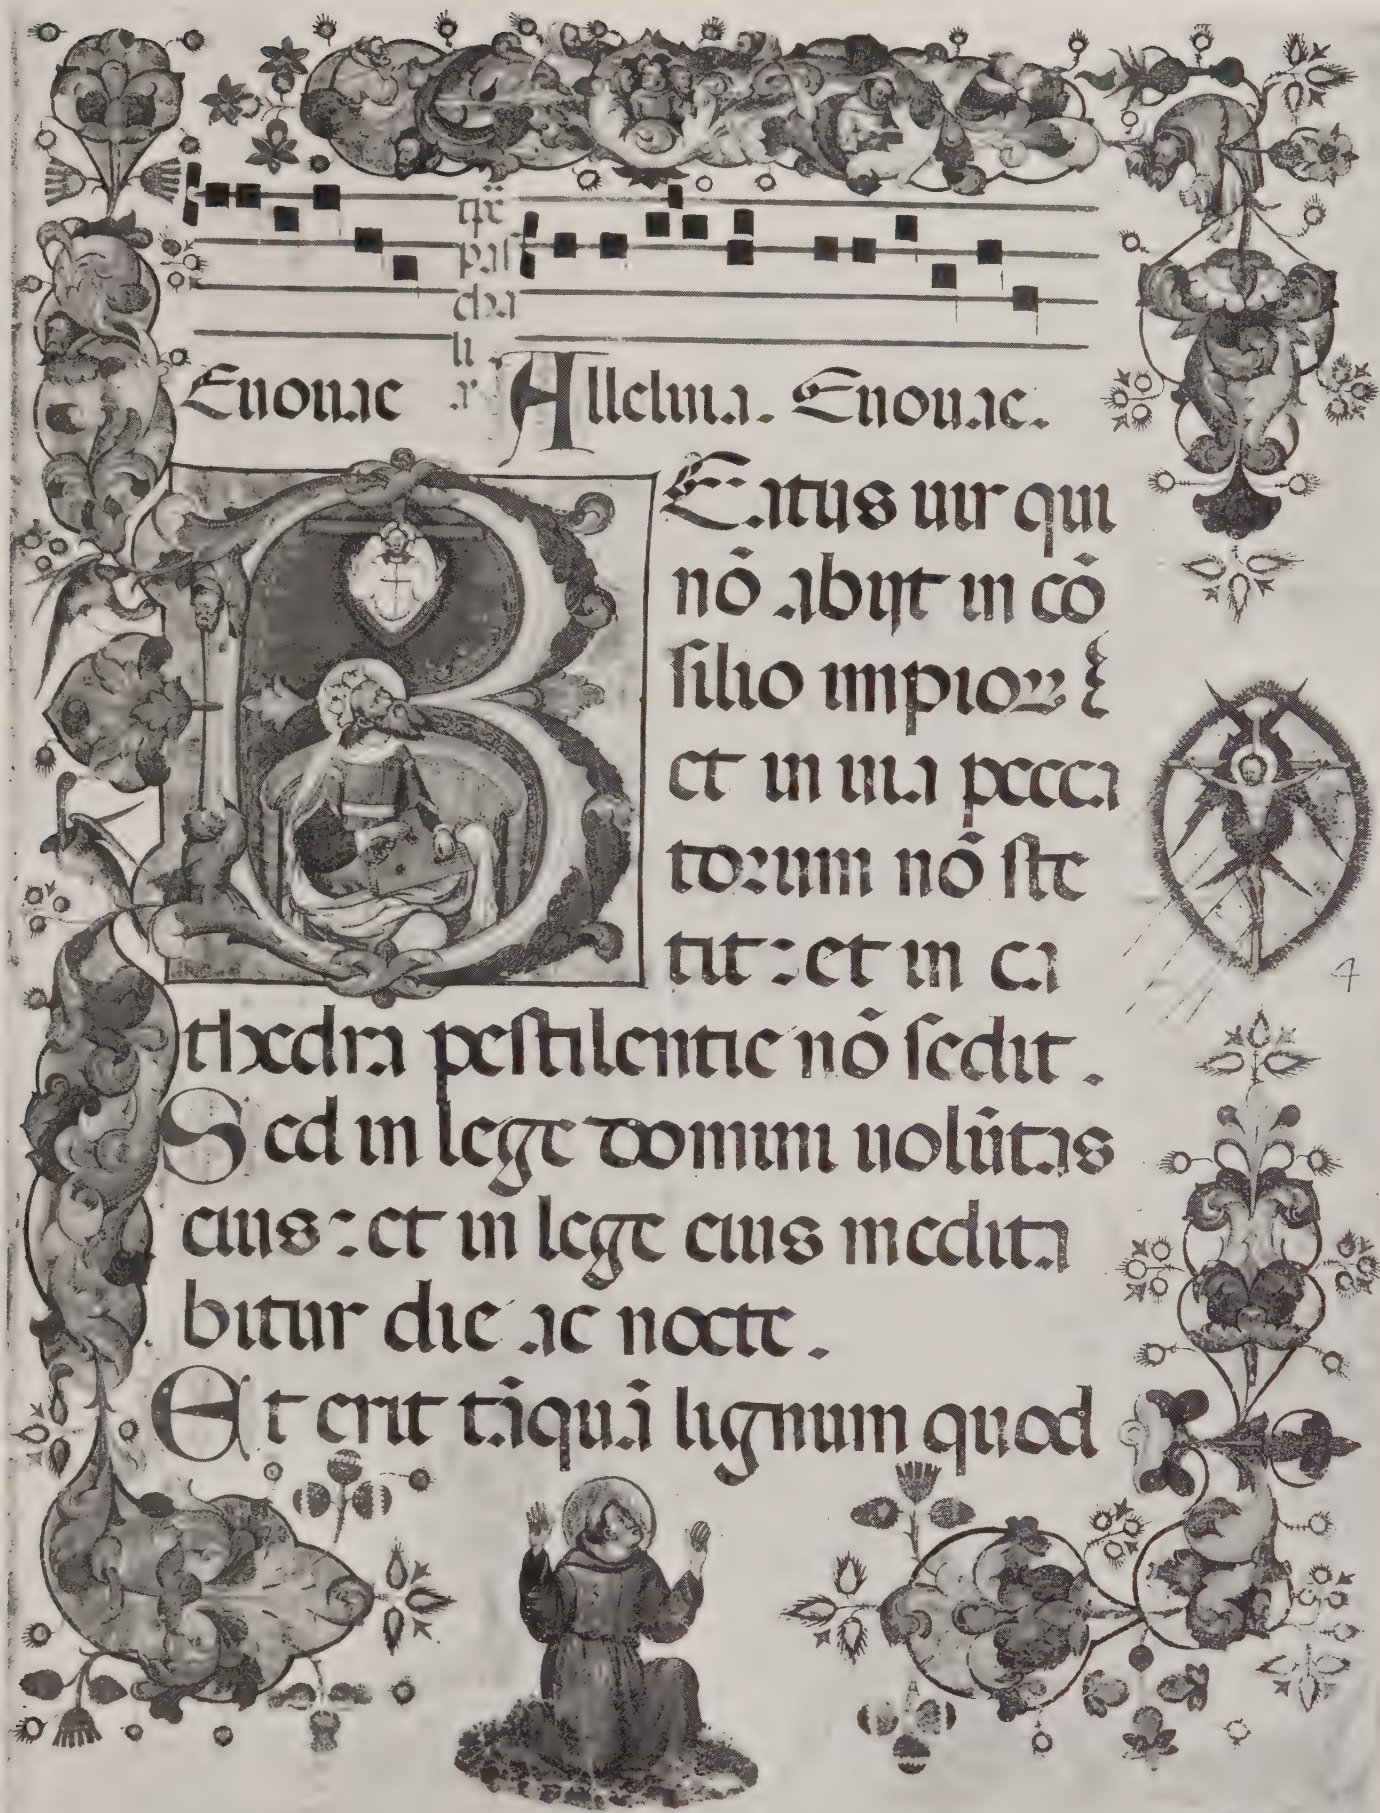 tp̄e
pas
cha
li
Euouae Alleluia. Euouae.
BEatus uir qui
nō abijt in cō
silio impioꝝ
et in uia pecca
torum nō ste
tit: et in ca
thedra pestilentie nō sedit.
Sed in lege domini uolūtas
eius: et in lege eius medita
bitur die ac nocte.
Et erit tāquā lignum quod
4